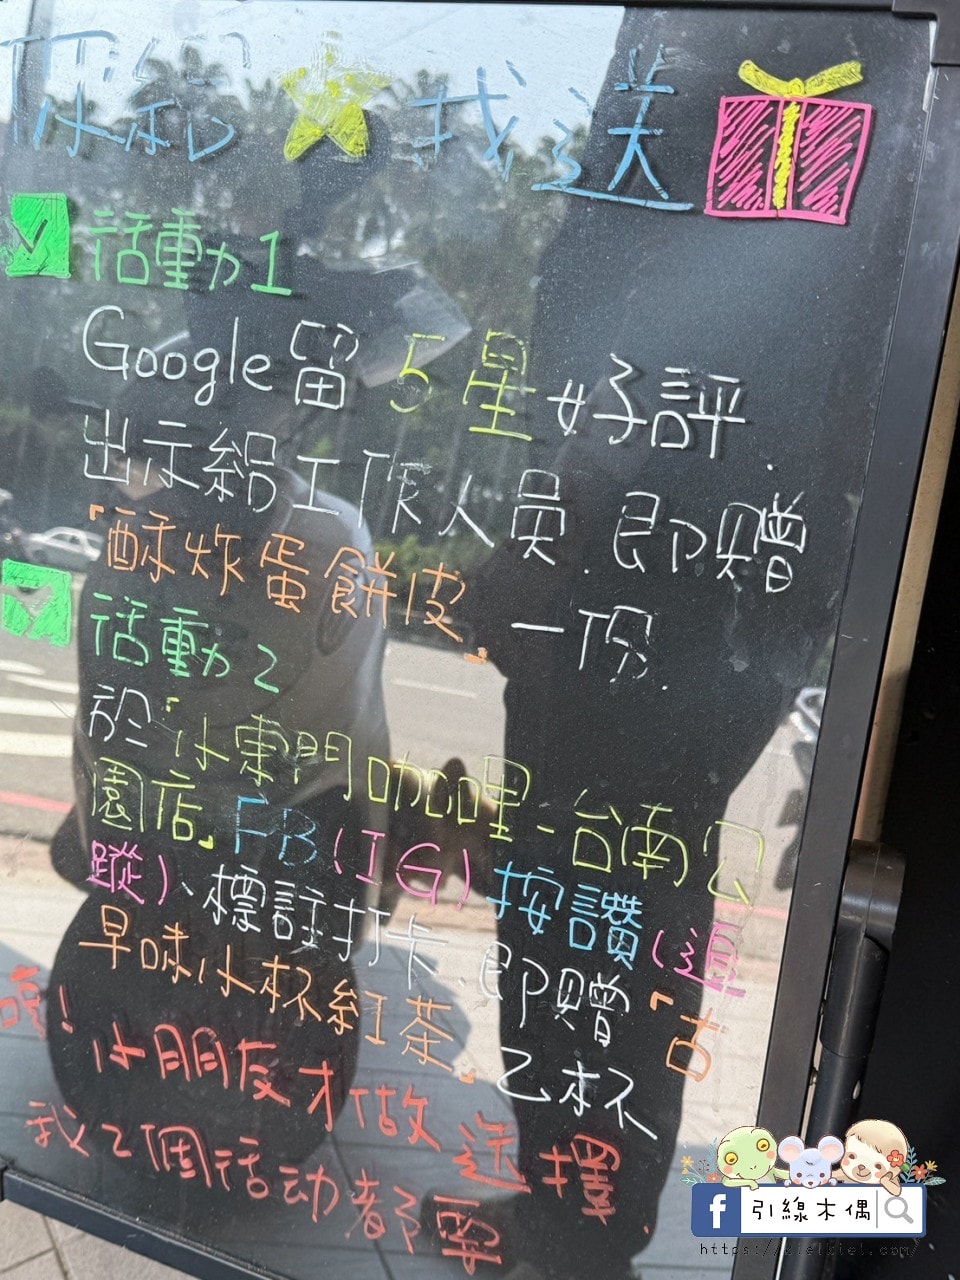 你給 我送
活動1
Google留5星好評.
出示給工作人員.即贈
「酥炸蛋餅皮」一份.
活動2
於「小東門咖哩-台南公
園店」FB(IG)按讚(追
蹤)、標註打卡.即贈「古
早味小杯紅茶」乙杯
嘿!小朋友才做選擇.
我2個活动都要
引線木偶